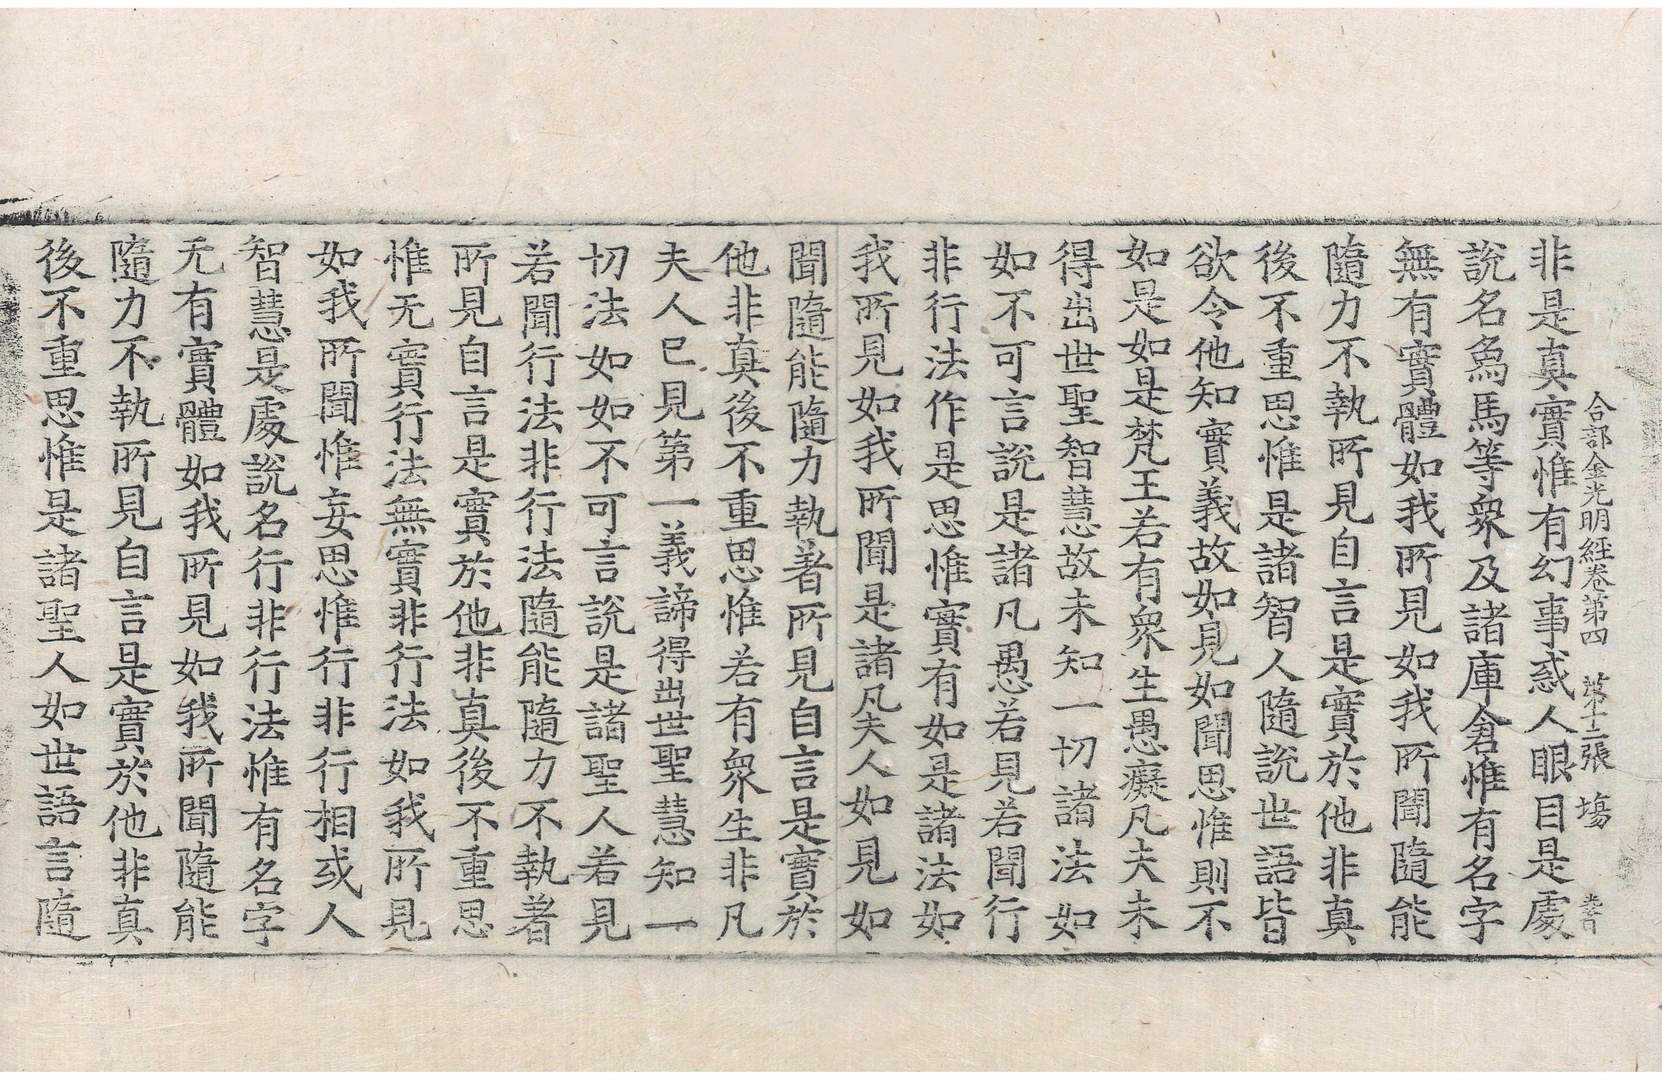 合部金光明經卷第四 第十二張 塲
非是真實惟有幻事惑人眼目是處
說名爲馬等衆及諸庫倉惟有名字
無有實體如我所見如我所聞隨能
隨力不執所見自言是實於他非真
後不重思惟是諸智人隨說世語皆
欲令他知實義故如見如聞思惟則不
如是如是梵王若有衆生愚癡凡夫未
得出世聖智慧故未知一切諸法如
如不可言說是諸凡愚若見若聞行
非行法作是思惟實有如是諸法如
我所見如我所聞是諸凡夫人如見如
聞隨能隨力執著所見自言是實於
他非真後不重思惟若有衆生非凡
夫人已見第一義諦得出世聖慧知一
切法如如不可言說是諸聖人若見
若聞行法非行法隨能隨力不執著
所見自言是實於他非真後不重思
惟无實行法無實非行法如我所見
如我所聞惟妄思惟行非行相或人
智慧是處說名行非行法惟有名字
无有實體如我所見如我所聞隨能
隨力不執所見自言是實於他非真
後不重思惟是諸聖人如世語言隨